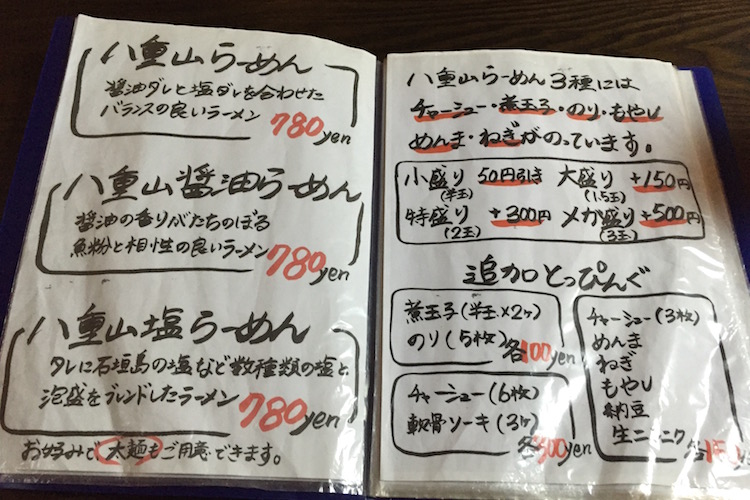 八重山らーめん
醤油ダレと塩ダレを合わせた
バランスの良いラーメン 780yen
八重山醤油らーめん
醤油の香りがたちのぼる
魚粉と相性の良いラーメン 780yen
八重山塩らーめん
タレに石垣島の塩など数種類の塩と、
泡盛をブレンドしたラーメン 780yen
お好みで太麺もご用意できます。
八重山らーめん3種には
チャーシュー・煮玉子・のり・もやし
めんま・ねぎがのっています。
小盛り 50円引き 大盛り +150円
(半玉) (1.5玉)
特盛り +300円 メガ盛り +500円
(2玉) (3玉)
追加とっぴんぐ
煮玉子(半玉×2ヶ)
のり(5枚) 各100yen
チャーシュー(6枚)
軟骨ソーキ(3ヶ)
各300yen
チャーシュー(3枚)
めんま
ねぎ
もやし
納豆
生ニンニク
各